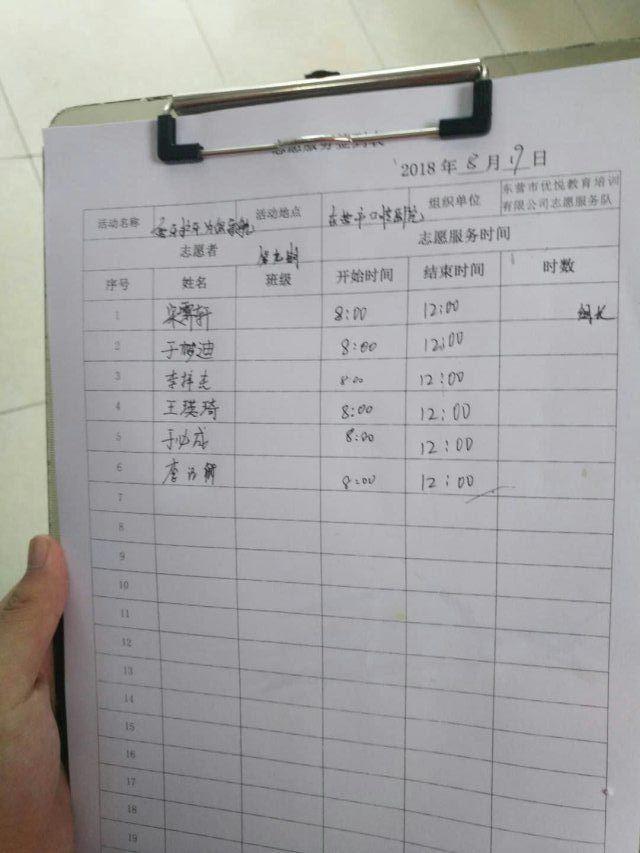 志愿服务签到表
2018 年 8 月 19 日
活动名称 活动地点 东营市口腔医院 组织单位 东营市优悦教育培训有限公司志愿服务队
志愿者 志愿服务时间
序号 姓名 班级 开始时间 结束时间 时数
1 宋霁轩 8:00 12:00 组长
2 于梦迪 8:00 12:00
3 李梓杰 8:00 12:00
4 王瑛琦 8:00 12:00
5 于必成 8:00 12:00
6 李 8:00 12:00
7
8
9
10
11
12
13
14
15
16
17
18
19